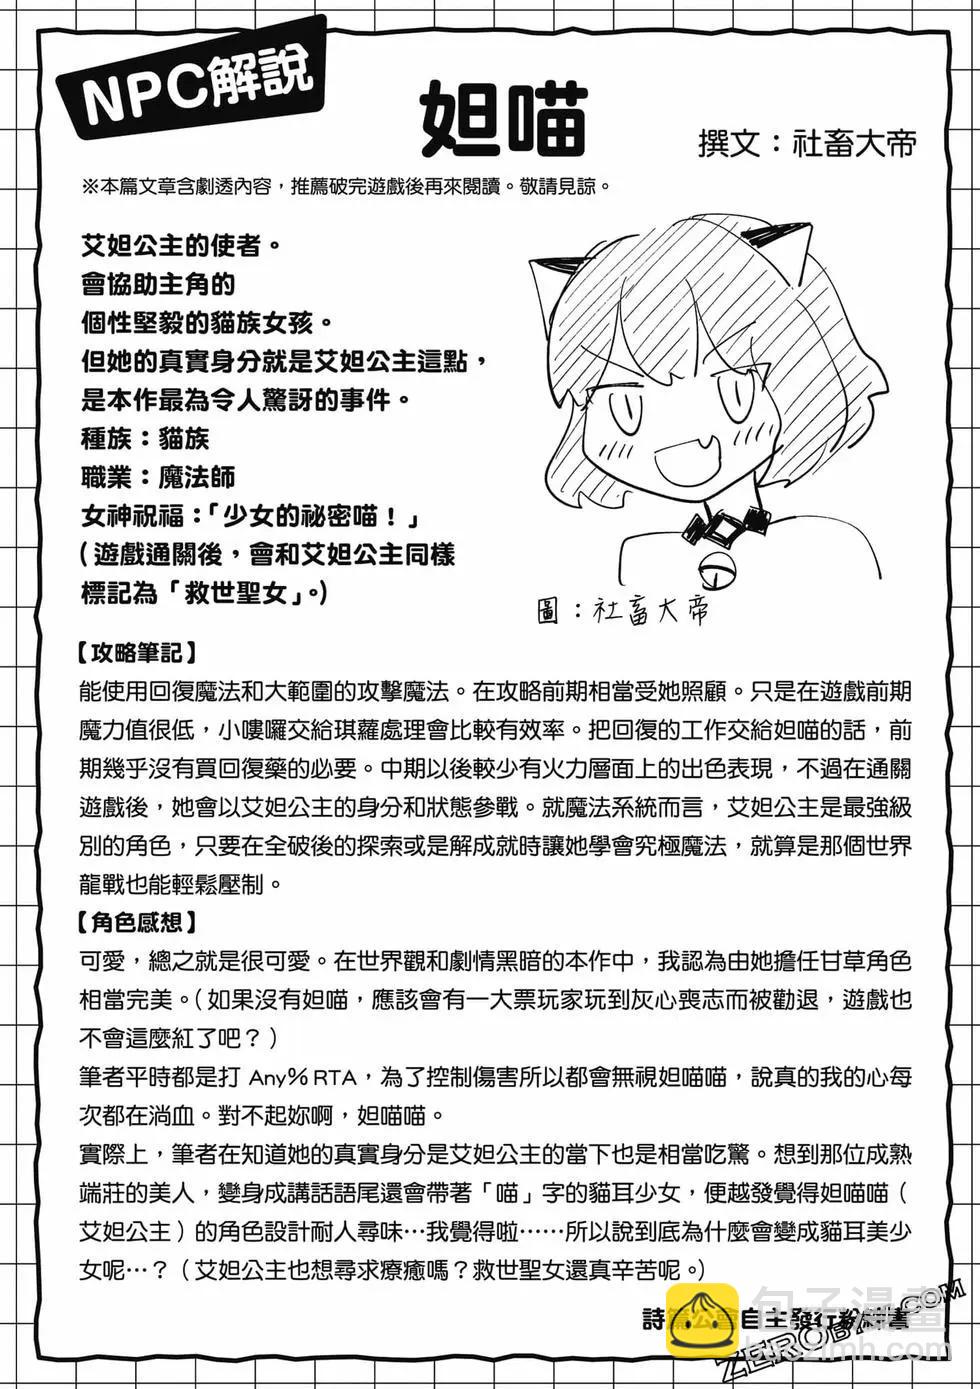 NPC解說
妲喵
撰文：社畜大帝
※本篇文章含劇透內容，推薦破完遊戲後再來閱讀。敬請見諒。
艾妲公主的使者。
會協助主角的
個性堅毅的貓族女孩。
但她的真實身分就是艾妲公主這點，
是本作最為令人驚訝的事件。
種族：貓族
職業：魔法師
女神祝福：「少女的祕密喵！」
（遊戲通關後，會和艾妲公主同樣
標記為「救世聖女」。）
圖：社畜大帝
【攻略筆記】
能使用回復魔法和大範圍的攻擊魔法。在攻略前期相當受她照顧。只是在遊戲前期
魔力值很低，小嘍囉交給琪蘿處理會比較有效率。把回復的工作交給妲喵的話，前
期幾乎沒有買回復藥的必要。中期以後較少有火力層面上的出色表現，不過在通關
遊戲後，她會以艾妲公主的身分和狀態參戰。就魔法系統而言，艾妲公主是最強級
別的角色，只要在全破後的探索或是解成就時讓她學會究極魔法，就算是那個世界
龍戰也能輕鬆壓制。
【角色感想】
可愛，總之就是很可愛。在世界觀和劇情黑暗的本作中，我認為由她擔任甘草角色
相當完美。（如果沒有妲喵，應該會有一大票玩家玩到灰心喪志而被勸退，遊戲也
不會這麼紅了吧？）
筆者平時都是打 Any％RTA，為了控制傷害所以都會無視妲喵喵，說真的我的心每
次都在淌血。對不起妳啊，妲喵喵。
實際上，筆者在知道她的真實身分是艾妲公主的當下也是相當吃驚。想到那位成熟
端莊的美人，變身成講話語尾還會帶著「喵」字的貓耳少女，便越發覺得妲喵喵（
艾妲公主）的角色設計耐人尋味…我覺得啦……所以說到底為什麼會變成貓耳美少
女呢…？（艾妲公主也想尋求療癒嗎？救世聖女還真辛苦呢。）
詩篇公會自主發行粉絲書
包子漫畫
baozimh.com